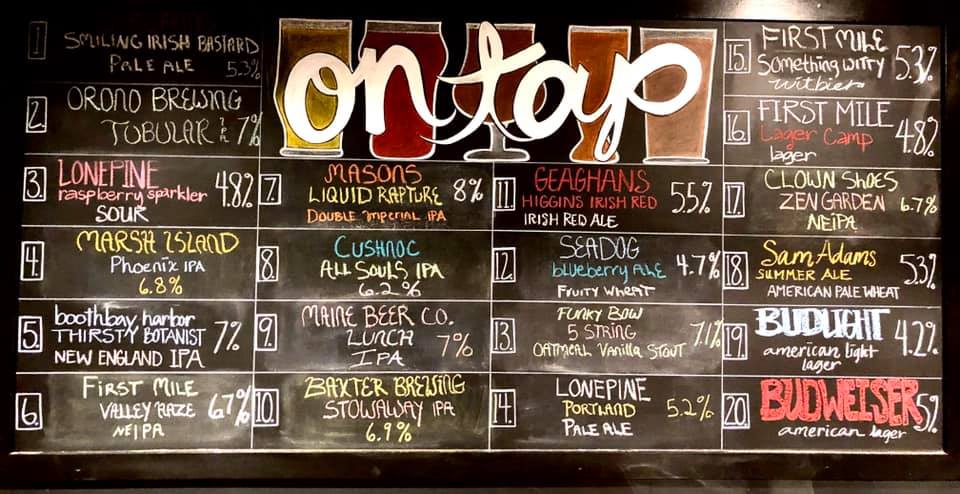 on tap
1
SMILING IRISH BASTARD
PALE ALE 5.3%
2.
ORONO BREWING
TUBULAR IPA 7%
3.
LONEPINE
raspberry sparkler 4.8%
SOUR
4.
MARSH ISLAND
Phoenix IPA
6.8%
5.
boothbay harbor
THIRSTY BOTANIST 7%
NEW ENGLAND IPA
6.
FIRST MILE
VALLEY HAZE 6.7%
NEIPA
7.
MASONS
LIQUID RAPTURE 8%
DOUBLE Imperial IPA
8.
CUSHNOC
ALL SOULS IPA
6.2%
9.
MAINE BEER CO.
LUNCH 7%
IPA
10.
BAXTER BREWING
STOWAWAY IPA
6.9%
11.
GEAGHANS
HIGGINS IRISH RED 5.5%
IRISH RED ALE
12.
SEADOG
blueberry ALE 4.7%
FRUITY WHEAT
13.
FUNKY BOW
5 STRING 7.1%
OATMEAL Vanilla STOUT
14.
LONEPINE
PORTLAND 5.2%
PALE ALE
15.
FIRST MILE
Something WITTY 5.3%
witbier
16.
FIRST MILE
Lager Camp 4.8%
lager
17.
CLOWN SHOES
ZEN GARDEN 6.7%
NEIPA
18.
Sam Adams
SUMMER ALE 5.3%
AMERICAN PALE WHEAT
19.
BUDLIGHT
american light 4.2%
lager
20.
BUDWEISER 5%
american lager